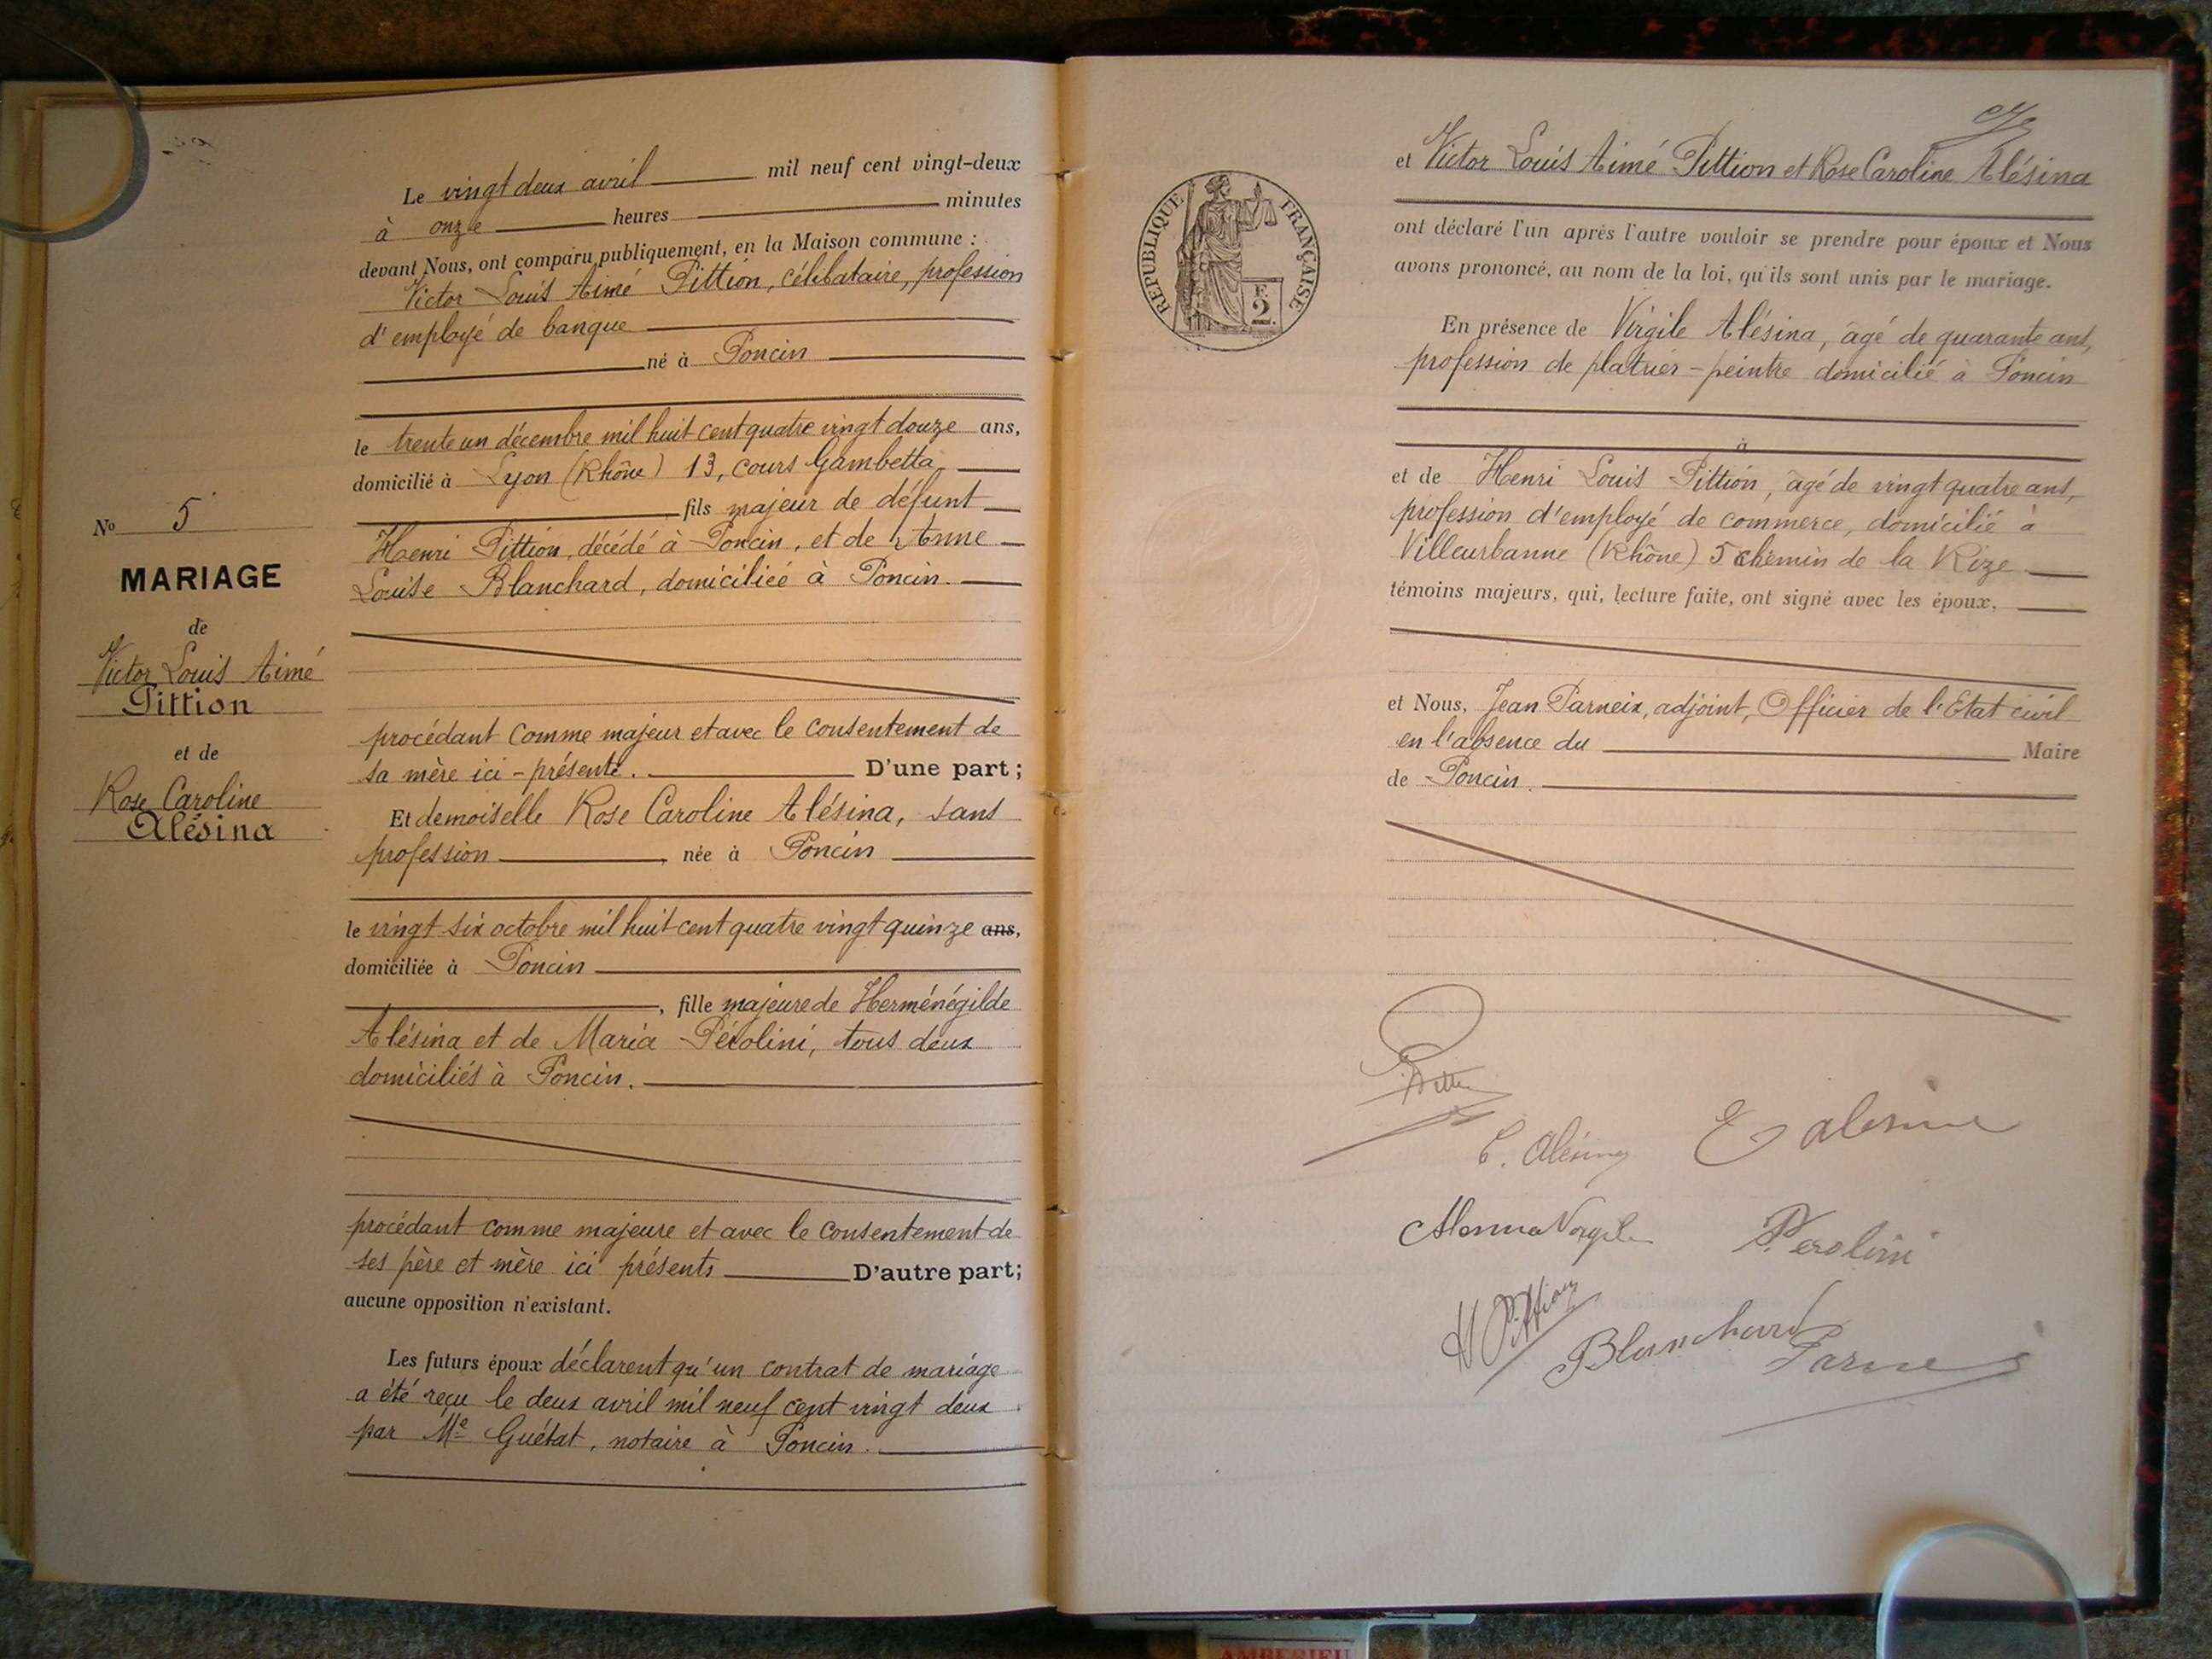 Le vingt deux avril mil neuf cent vingt-deux
à onze heures minutes
devant Nous, ont comparu publiquement, en la Maison commune :
Victor Louis Aimé Pittion, célibataire, profession
d'employé de banque
né à Poncin
le trente un décembre mil huit cent quatre vingt douze ans,
domicilié à Lyon (Rhône) 13, cours Gambetta
fils majeur de défunt
Henri Pittion, décédé à Poncin, et de Anne
Louise Blanchard, domiciliée à Poncin.
N° 5
MARIAGE
de
Victor Louis Aimé
Pittion
et de
Rose Caroline
Alésina
procédant comme majeur et avec le consentement de
sa mère ici-présente. D'une part;
Et demoiselle Rose Caroline Alésina, sans
profession, née à Poncin
le vingt six octobre mil huit cent quatre vingt quinze ans,
domiciliée à Poncin
, fille majeure de Herménégilde
Alésina et de Maria Pérolini, tous deux
domiciliés à Poncin.
procédant comme majeure et avec le consentement de
ses père et mère ici présents D'autre part;
aucune opposition n'existant.
Les futurs époux déclarent qu'un contrat de mariage
a été reçu le deux avril mil neuf cent vingt deux
par Me Guétat, notaire à Poncin.
RÉPUBLIQUE FRANÇAISE
F.
2
et Victor Louis Aimé Pittion et Rose Caroline Alésina
ont déclaré l'un après l'autre vouloir se prendre pour époux et Nous
avons prononcé, au nom de la loi, qu'ils sont unis par le mariage.
En présence de Virgile Alésina, âgé de quarante ans,
profession de platrier-peintre domicilié à Poncin
à
et de Henri Louis Pittion, âgé de vingt quatre ans,
profession d'employé de commerce, domicilié à
Villeurbanne (Rhône) 5 chemin de la Rize
témoins majeurs, qui, lecture faite, ont signé avec les époux,
et Nous, Jean Parneix, adjoint, Officier de l'Etat civil
en l'absence du Maire
de Poncin.
C. Alésina
E Alesina
Alesina Virgile
P. Perolini
H Pittion
Blanchard
AMBERIEU